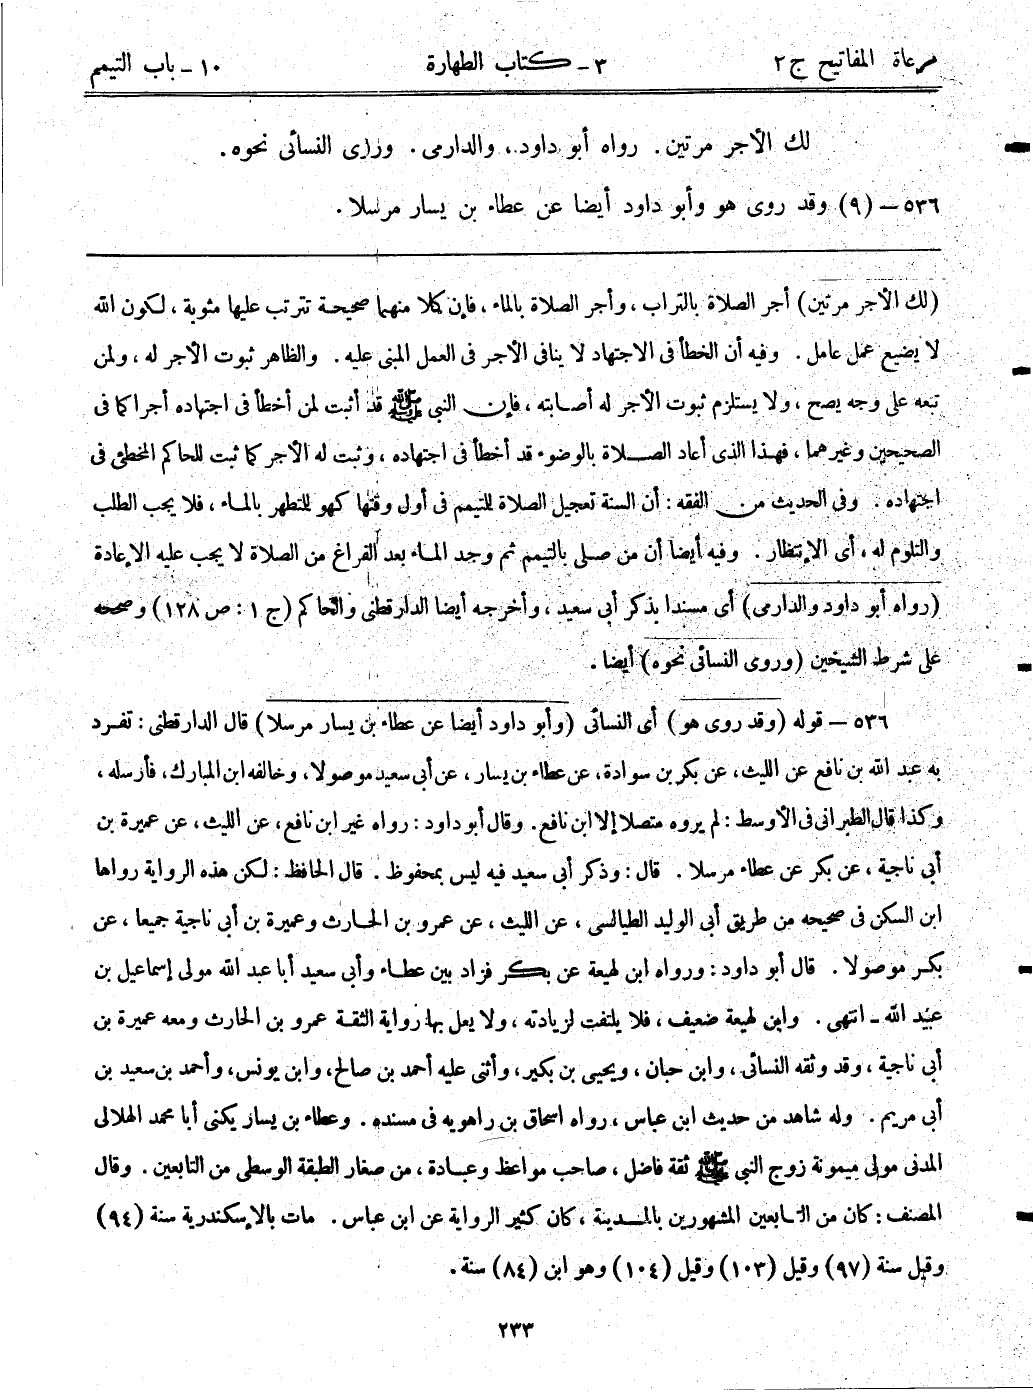 مرعاة المفاتيح ج ٢
٣ - كتاب الطهارة
١٠ - باب التيمم
لك الأجر مرتين. رواه أبو داود، والدارمى. وروى النسائى نحوه.
٥٣٦ – (٩) وقد روى هو وأبو داود أيضا عن عطاء بن يسار مرسلا.
(لك الأجر مرتين) أجر الصلاة بالتراب، وأجر الصلاة بالماء، فإن كلا منهما صحيحة تترتب عليها مثوبة، لكون الله
لا يضيع عمل عامل. وفيه أن الخطأ فى الاجتهاد لا ينافى الأجر فى العمل المبنى عليه. والظاهر ثبوت الأجر له، ولمن
تبعه على وجه يصح، ولا يستلزم ثبوت الأجر له أصابته، فإن النبى ﷺ قد أثبت لمن أخطأ فى اجتهاده أجرا كما فى
الصحيحين وغيرهما، فهذا الذى أعاد الصلاة بالوضوء قد أخطأ فى اجتهاده، وثبت له الأجر كما ثبت للحاكم المخطئى فى
اجتهاده. وفى الحديث من الفقه: أن السنة تعجيل الصلاة للتيمم فى أول وقتها كهو للتطهر بالماء، فلا يجب الطلب
والتلوم له، أى الإنتظار. وفيه أيضا أن من صلى بالتيمم ثم وجد الماء بعد الفراغ من الصلاة لا يجب عليه الإعادة
(رواه أبو داود والدارمى) أى مسندا بذكر أبى سعيد، وأخرجه أيضا الدارقطنى والحاكم (ج ١: ص ١٢٨) وصححه
على شرط الشيخين (وروى النسائى نحوه) أيضا.
٥٣٦ – قوله (وقد روى هو) أى النسائى (وأبو داود أيضا عن عطاء بن يسار مرسلا) قال الدارقطنى: تفرد
به عبد الله بن نافع عن الليث، عن بكر بن سوادة، عن عطاء بن يسار، عن أبى سعيد موصولا، وخالفه ابن المبارك، فأرسله،
وكذا قال الطبرانى فى الأوسط: لم يروه متصلا إلا ابن نافع. وقال أبو داود: رواه غير ابن نافع، عن الليث، عن عميرة بن
أبى ناجية، عن بكر عن عطاء مرسلا. قال: وذكر أبى سعيد فيه ليس بمحفوظ. قال الحافظ: لكن هذه الرواية رواها
ابن السكن فى صحيحه من طريق أبى الوليد الطيالسى، عن الليث، عن عمرو بن الحارث وعميرة بن أبى ناجية جميعا، عن
بكر موصولا. قال أبو داود: ورواه ابن لهيعة عن بكر فزاد بين عطاء وأبى سعيد أبا عبد الله مولى إسماعيل بن
عبيد الله - انتهى. وابن لهيعة ضعيف، فلا يلتفت لزيادته، ولا يعل بها رواية الثقة عمرو بن الحارث ومعه عميرة بن
أبى ناجية، وقد وثقه النسائى، وابن حبان، ويحيى بن بكير، وأثنى عليه أحمد بن صالح، وابن يونس، وأحمد بن سعيد بن
أبى مريم. وله شاهد من حديث ابن عباس، رواه اسحاق بن راهويه فى مسنده. وعطاء بن يسار يكنى أبا محمد الهلالى
المدنى مولى ميمونة زوج النبى ﷺ ثقة فاضل، صاحب مواعظ وعبادة، من صغار الطبقة الوسطى من التابعين. وقال
المصنف: كان من التابعين المشهورين بالمدينة، كان كثير الرواية عن ابن عباس. مات بالإسكندرية سنة (٩٤)
وقيل سنة (٩٧) وقيل (١٠٣) وقيل (١٠٤) وهو ابن (٨٤) سنة.
٢٣٣